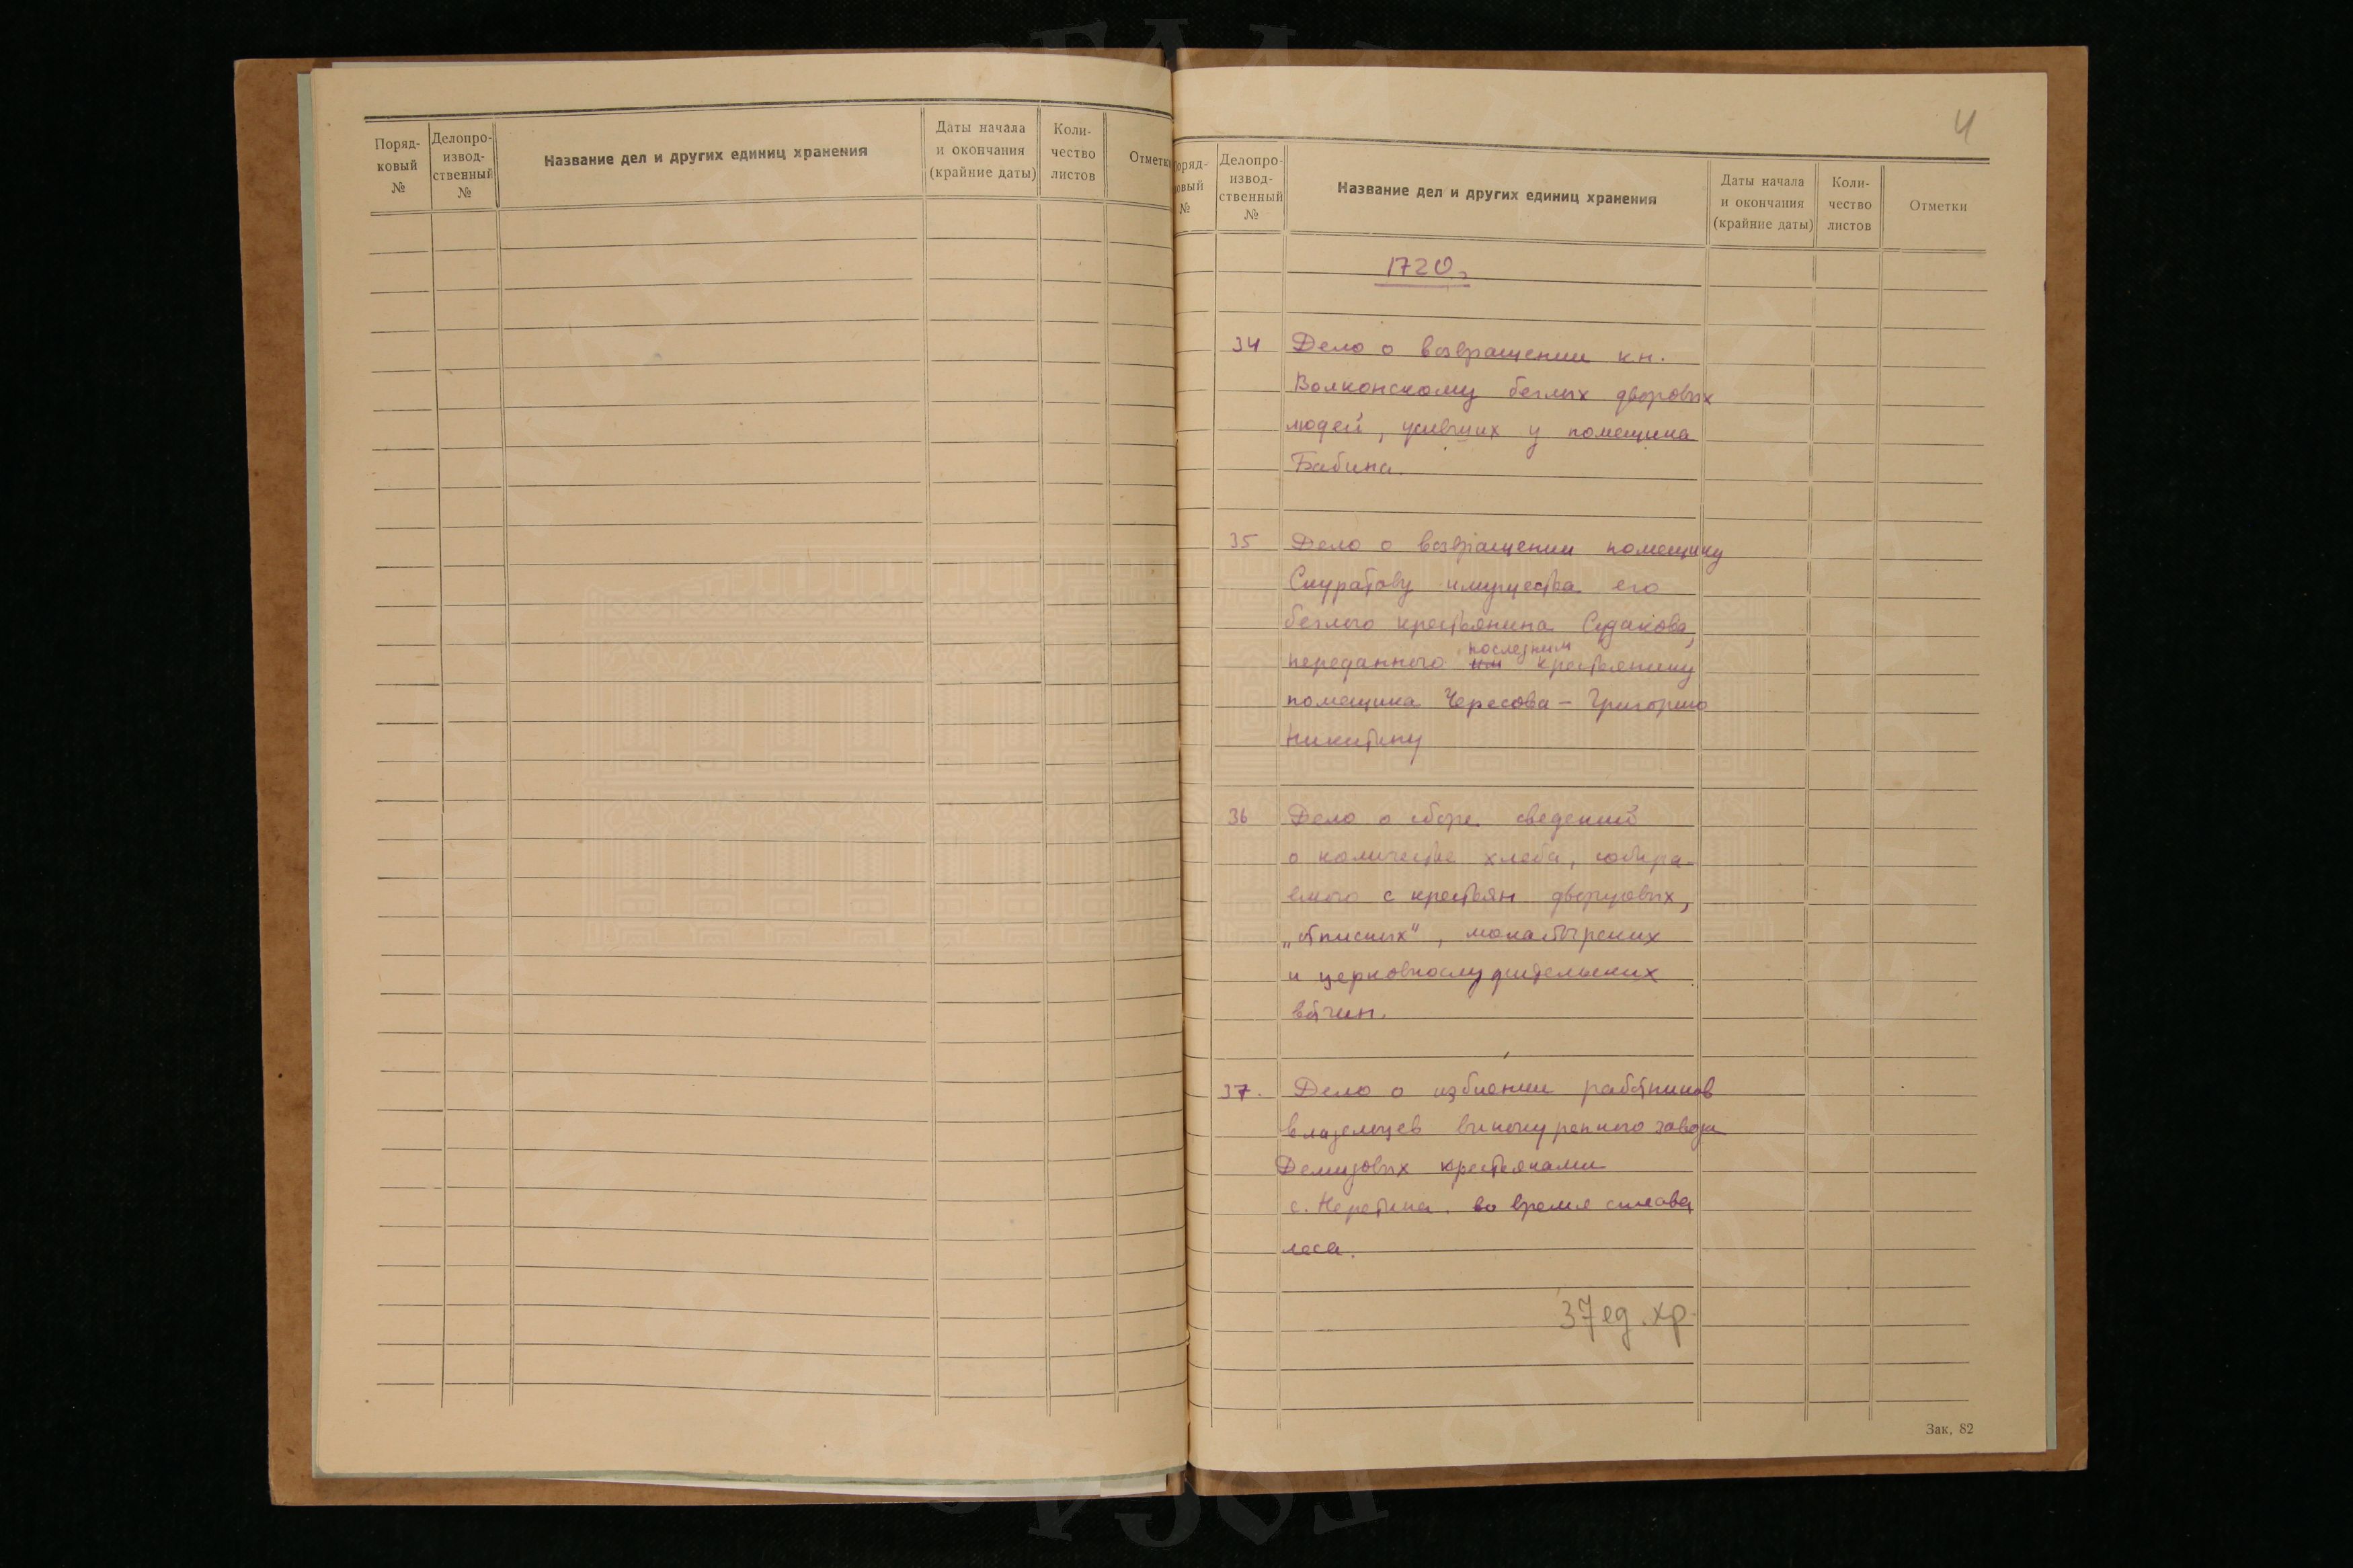 Поряд-
ковый
№
Делопро-
извод-
ственный
№
Название дел и других единиц хранения
Даты начала
и окончания
(крайние даты)
Коли-
чество
листов
Отметки
4
Поряд-
ковый
№
Делопро-
извод-
ственный
№
Название дел и других единиц хранения
Даты начала
и окончания
(крайние даты)
Коли-
чество
листов
Отметки
1720г
34 Дело о возвращении кн.
Волконскому беглых дворовых
людей, живших у помещика
Бабина.
35 Дело о возвращении помещику
Скуратову имущества его
беглого крестьянина Судакова,
последним
переданного им крестьянину
помещика Чересова – Григорию
Никитину
36 Дело о сборе сведений
о количестве хлеба, собира-
емого с крестьян дворцовых,
„отписных“, монастырских
и церковнослужительских
вотчин.
37. Дело о избиении работников
владельцев винокуренного завода
Демидовых крестьянами
с. Неретина. во время сплава
леса.
37 ед. хр.
Зак. 82